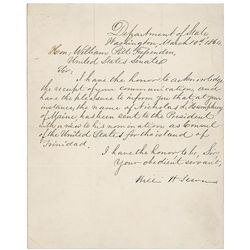 Department of State
Washington, March 18th 186
Hon. William Pitt Fessenden,
United States Senate
Sir,
I have the honor to acknowledge
the receipt of your communication, and
have the pleasure to inform you that at your
instance, the name of Nicholas Humphrey
of Maine has been sent to the President
with a view to his nomination as Consul
of the United States, for the island of
Trinidad.
I have the honor to be, Sir,
Your obedient servant,
H. Sew